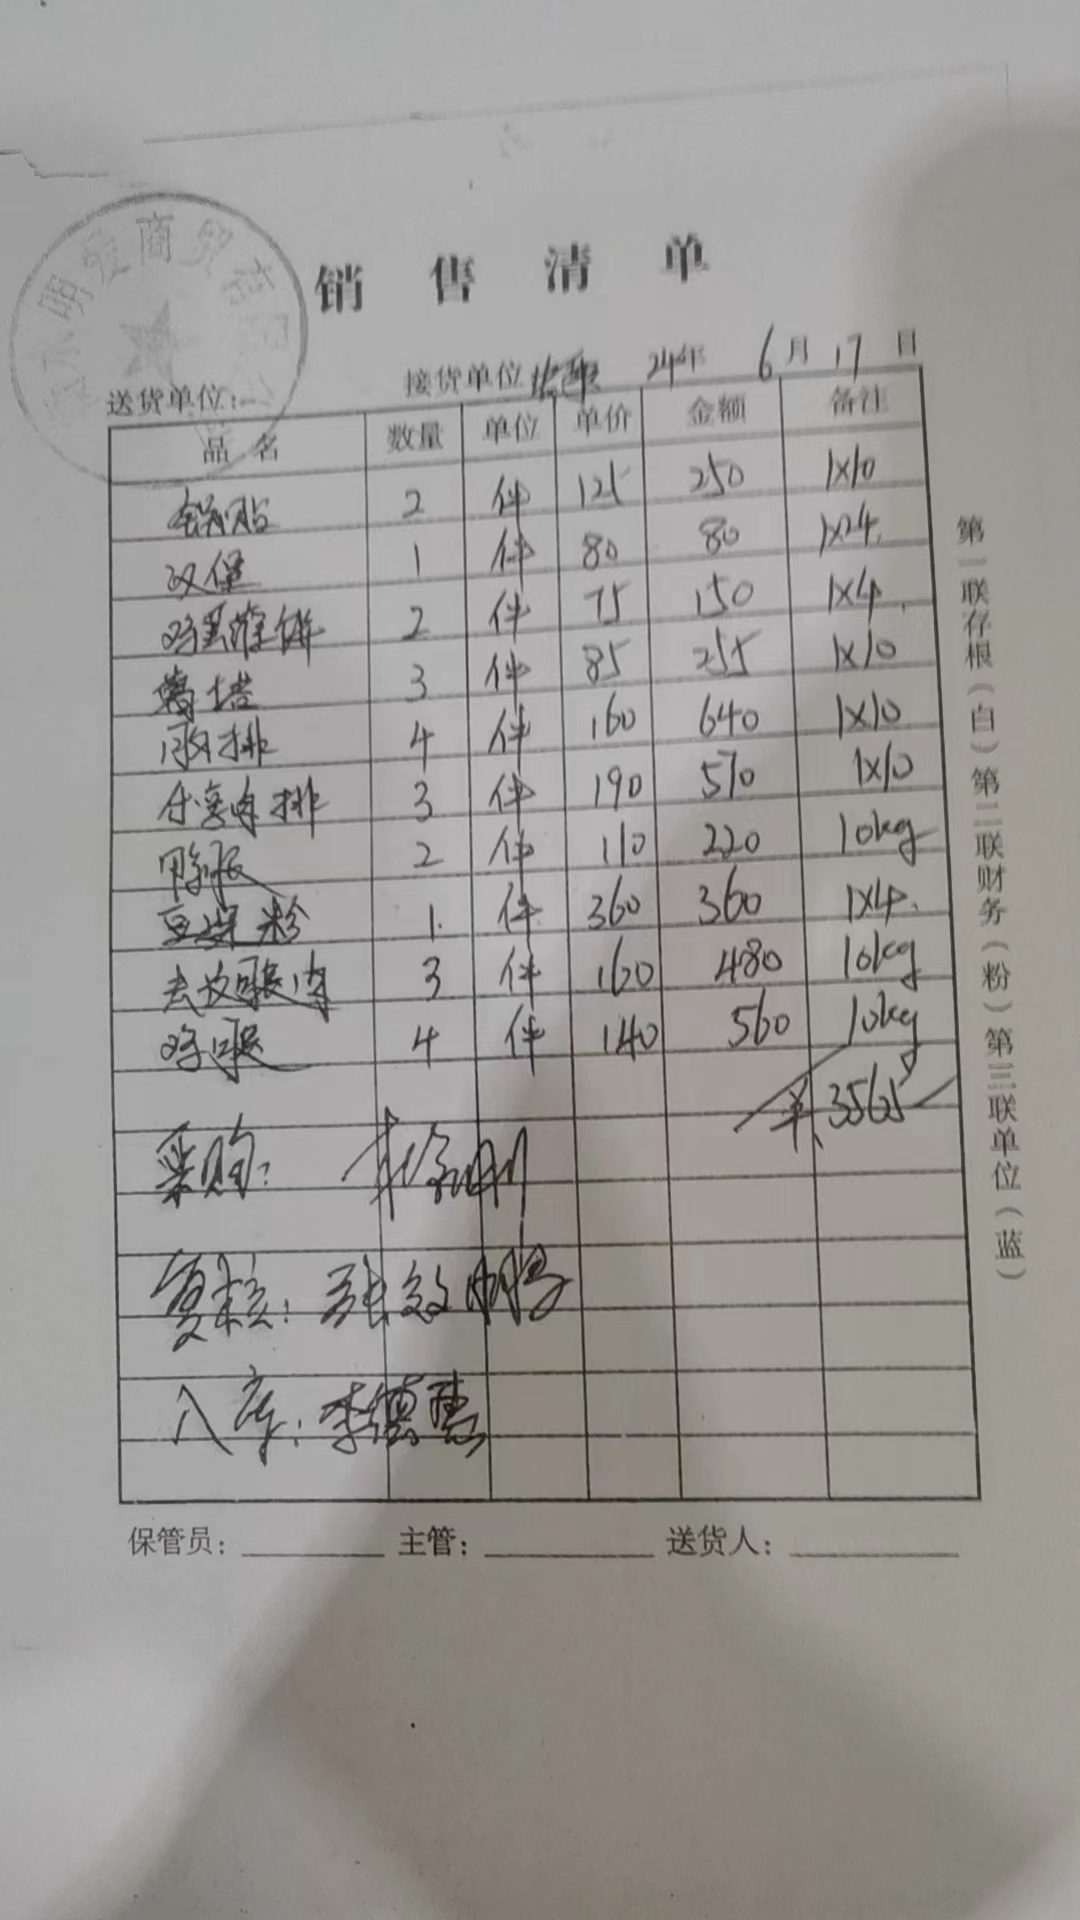 明爱商贸有限
销售清单
送货单位: 接货单位 24年 6月17日
品名 数量 单位 单价 金额 备注
锅贴 2 件 125 250 1x10
汉堡 1 件 80 80 1x24
鸡蛋灌饼 2 件 75 150 1x4
薯塔 3 件 85 255 1x10
排 4 件 160 640 1x10
排 3 件 190 570 1x10
鸭腿 2 件 110 220 10kg
粉 1 件 360 360 1x4
去皮腿肉 3 件 160 480 10kg
鸡腿 4 件 140 560 10kg
¥3565
采购:
复核: 张
入库: 李德惠
保管员: 主管: 送货人:
第一联存根(白)第二联财务(粉)第三联单位(蓝)